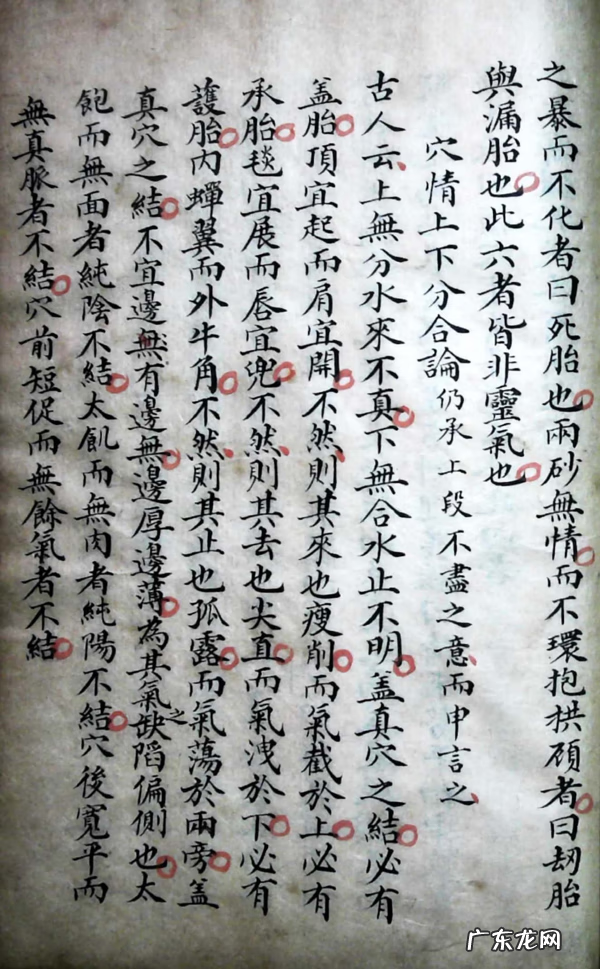 之暴而不化者曰死胎也兩砂無情而不環抱拱顧者曰刼胎
與漏胎也此六者皆非靈氣也
穴情上下分合論仍承上段不盡之意而申言之
古人云上無分水來不真下無合水止不明盖真穴之結必有
盖胎頂宜起而肩宜開不然則其來也瘦削而氣截於上必有
承胎毯宜展而唇宜兜不然則其去也尖直而氣洩於下必有
護胎內蟬翼而外牛角不然則其止也孤露而氣蕩於兩旁盖
真穴之結不宜邊無有邊無邊厚邊薄為其氣之缺陷偏側也太
飽而無面者純陰不結太飢而無肉者純陽不結穴後寬平而
無真脈者不結穴前短促而無餘氣者不結
广东龙网